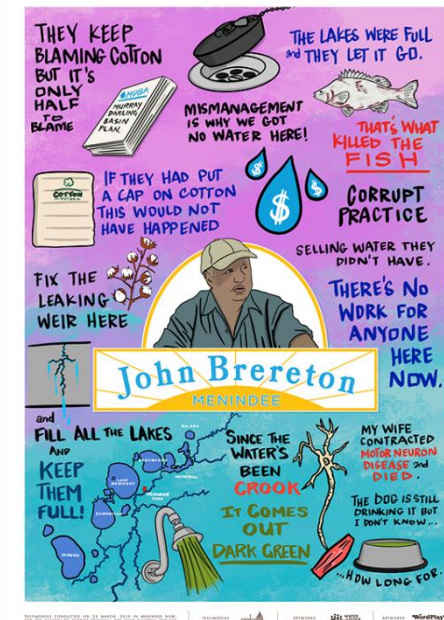 THEY KEEP
BLAMING COTTON
BUT IT'S
ONLY
HALF
TO
BLAME
MDBA
MURRAY
DARLING
BASIN
PLAN.
MISMANAGEMENT
IS WHY WE GOT
NO WATER HERE!
THE LAKES WERE FULL
and THEY LET IT GO.
THAT'S WHAT
KILLED THE
FISH
COTTON
IF THEY HAD PUT
A CAP ON COTTON
THIS WOULD NOT
HAVE HAPPENED
$ $ $
CORRUPT
PRACTICE
SELLING WATER THEY
DIDN'T HAVE.
FIX THE
LEAKING
WEIR HERE
THERE'S NO
WORK FOR
ANYONE
HERE
NOW.
John Brereton
MENINDEE
and
FILL ALL THE LAKES
AND
KEEP
THEM
FULL!
SINCE THE
WATER'S
BEEN
CROOK
IT COMES
OUT
DARK GREEN
MY WIFE
CONTRACTED
MOTOR NEURON
DISEASE and
DIED.
THE DOG IS STILL
DRINKING IT BUT
I DON'T KNOW...
...HOW LONG FOR.
TESTIMONIES
ARTWORKS
ARTWORKS
WordPlay